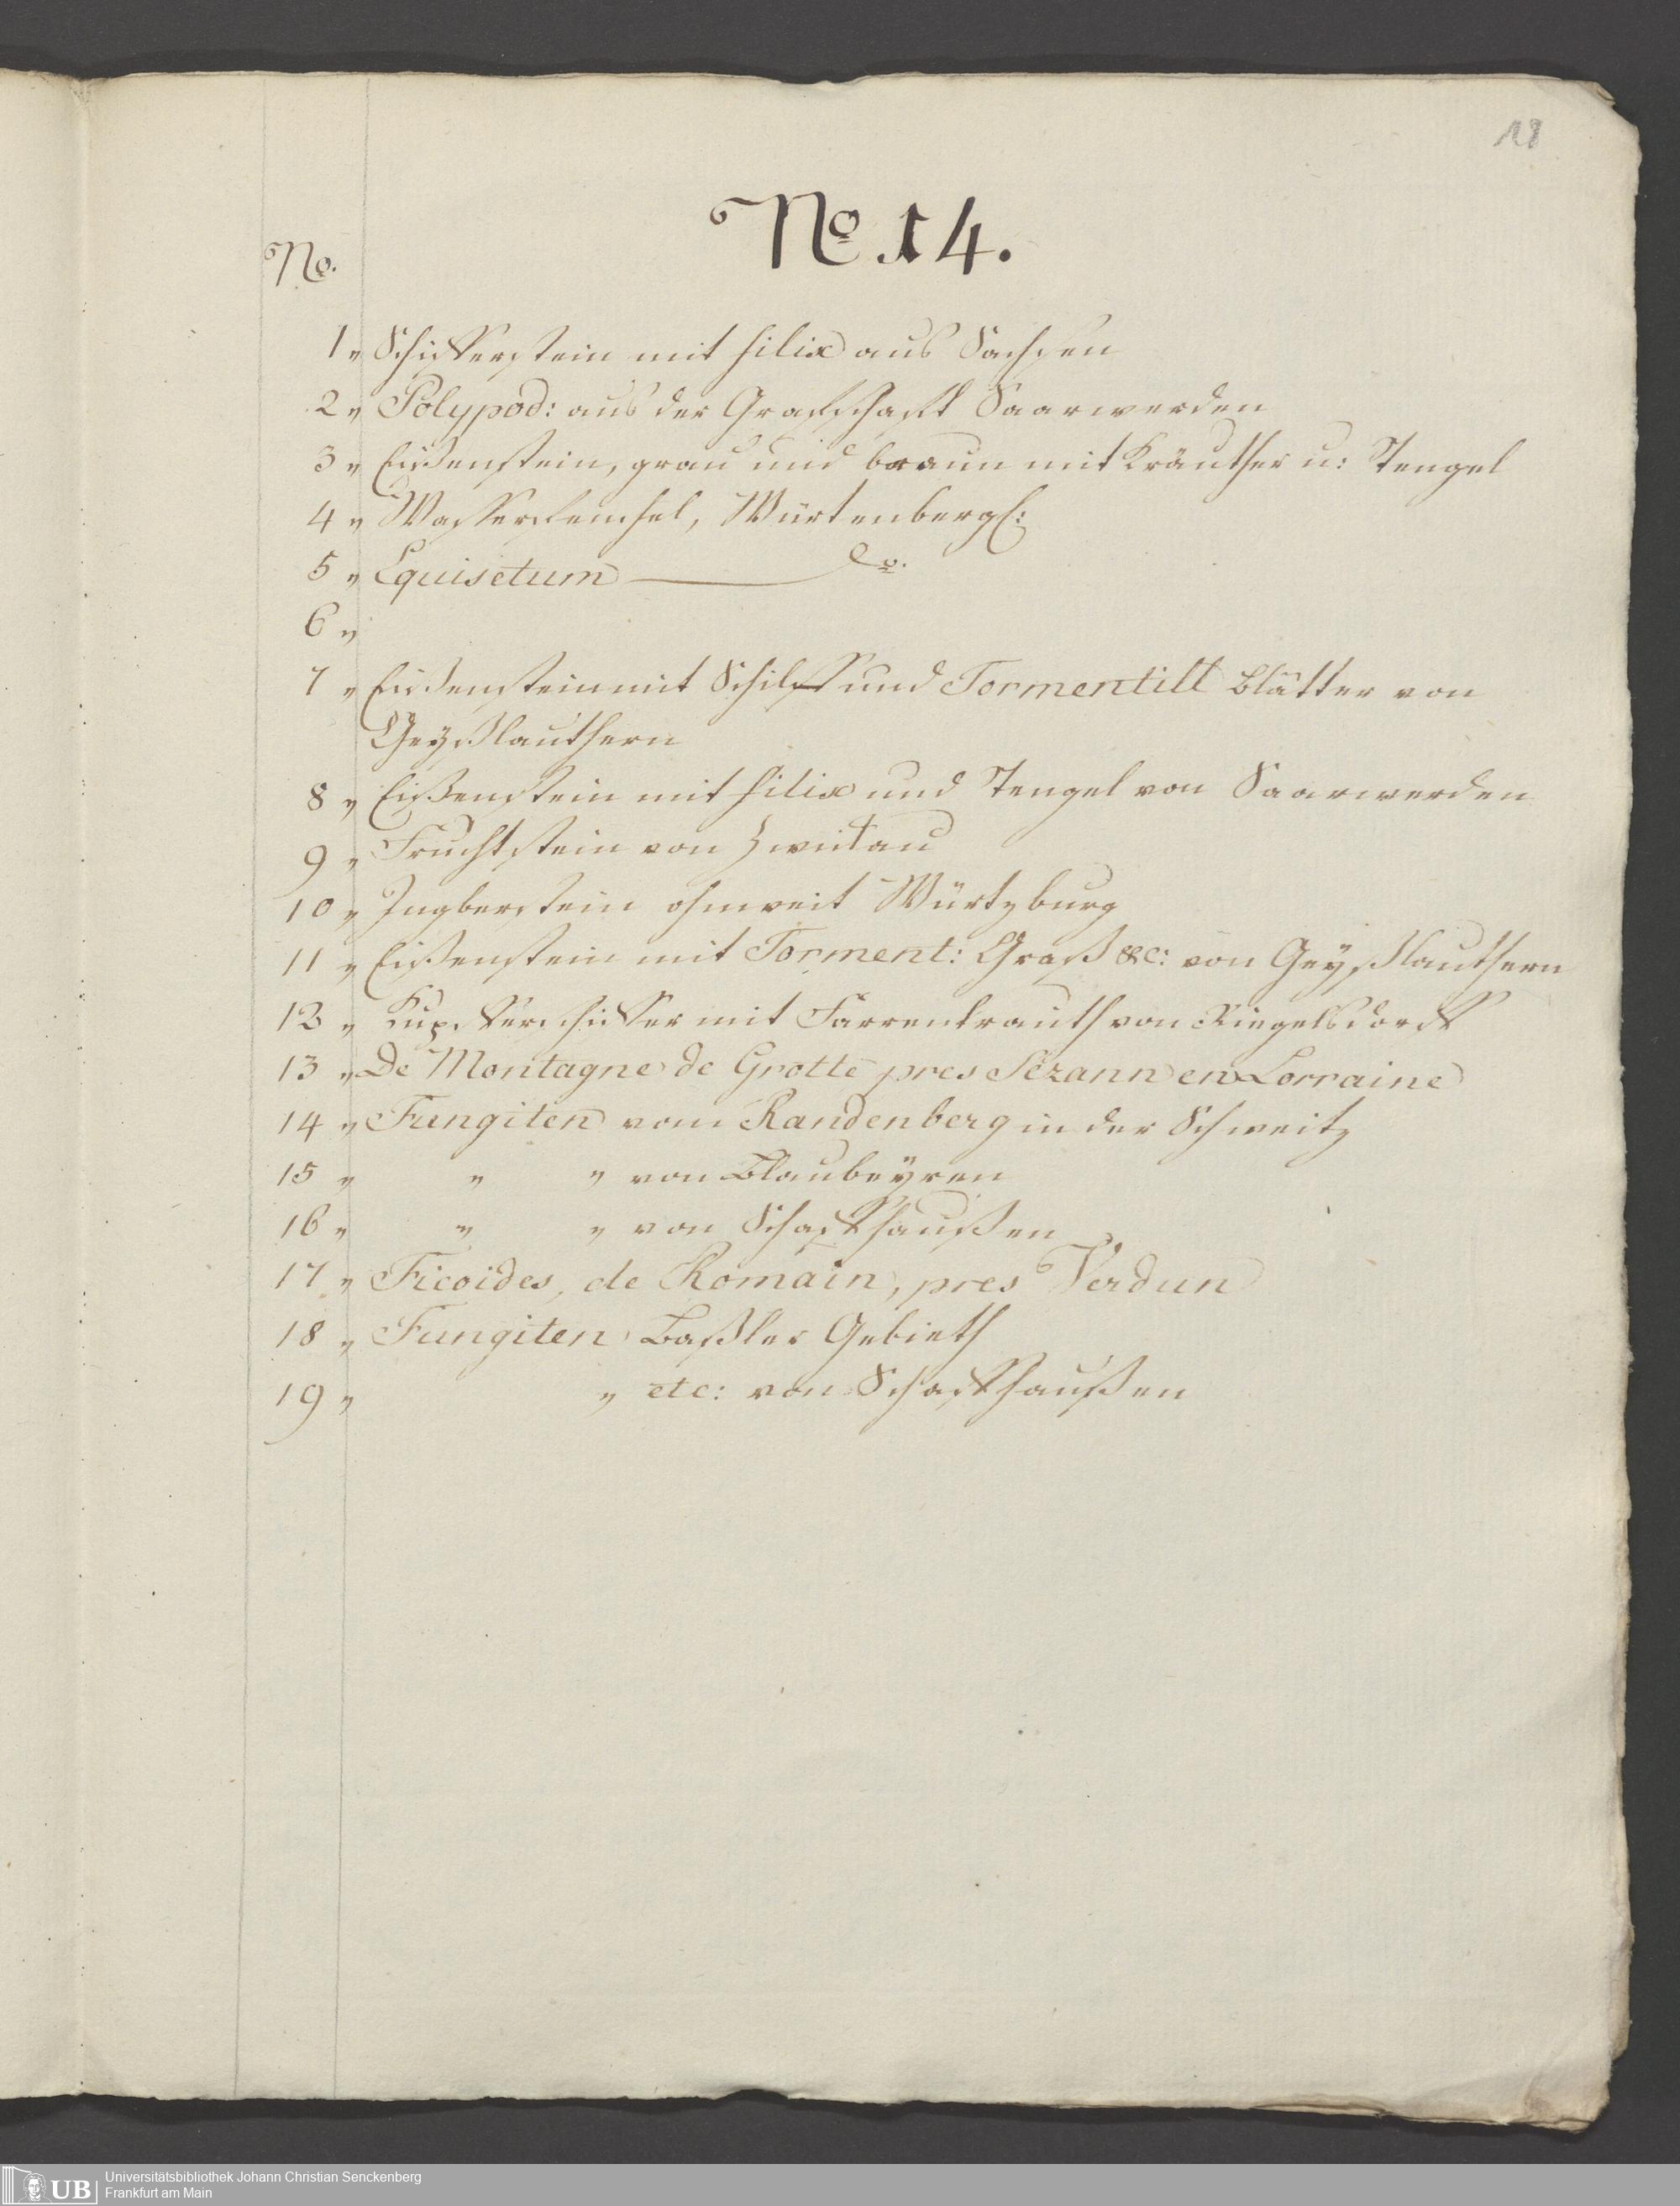 18
No. 14.
No.
1 „ Schifferstein mit filix aus Sachsen
2 „ Polypod: aus der Graffschafft Saarwerden
3 „ Eißenstein, grau und braun mit Kräuther u: Stengel
4 „ Wasserfenchel, Würtenbergl:
5 „ Equisetum do.
6 „
7 „ Eißenstein mit Schilff und Tormentill Blätter von
Geyßlauthern
8 „ Eißenstein mit filix und Stengel von Saarwerden
9 „ Fruchtstein von Zwickau
10 „ Ingberstein ohnweit Würtzburg
11 „ Eißenstein mit Torment: Graß &c: von Geyßlauthern
12 „ Kupferschiffer mit Farrenkrauth von Riegelsdorff
13 „ De Montagne de Grotte pres Sezann en Lorraine
14 „ Fungiten vom Randenberg in der Schweitz
15 „ „ „ von Blaubeyren
16 „ „ „ von Schaffhaußen
17 „ Ficoides, de Romain, pres Verdun
18 „ Fungiten Baßler Gebieth
19 „ „ etc: von Schaffhaußen
UB Universitätsbibliothek Johann Christian Senckenberg
Frankfurt am Main